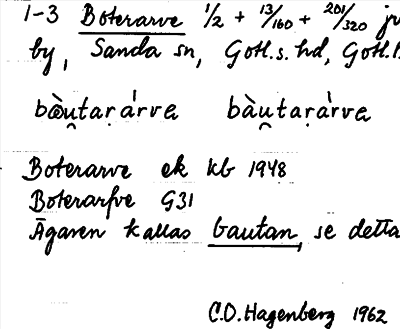 1-3 Boterarve 1/2 + 13/160 + 201/320 ju
by, Sanda sn, Gotl.s. hd, Gotl.l
bòu̯taṛárve bàu̯taṛárve
Boterarve ek kb 1948
Boterarfve G31
Ägaren kallas bautan, se detta
C.O. Hagenberg 1962